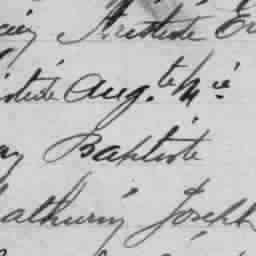 Aristide
Aug.te Mie
Baptiste
athurin Joseph